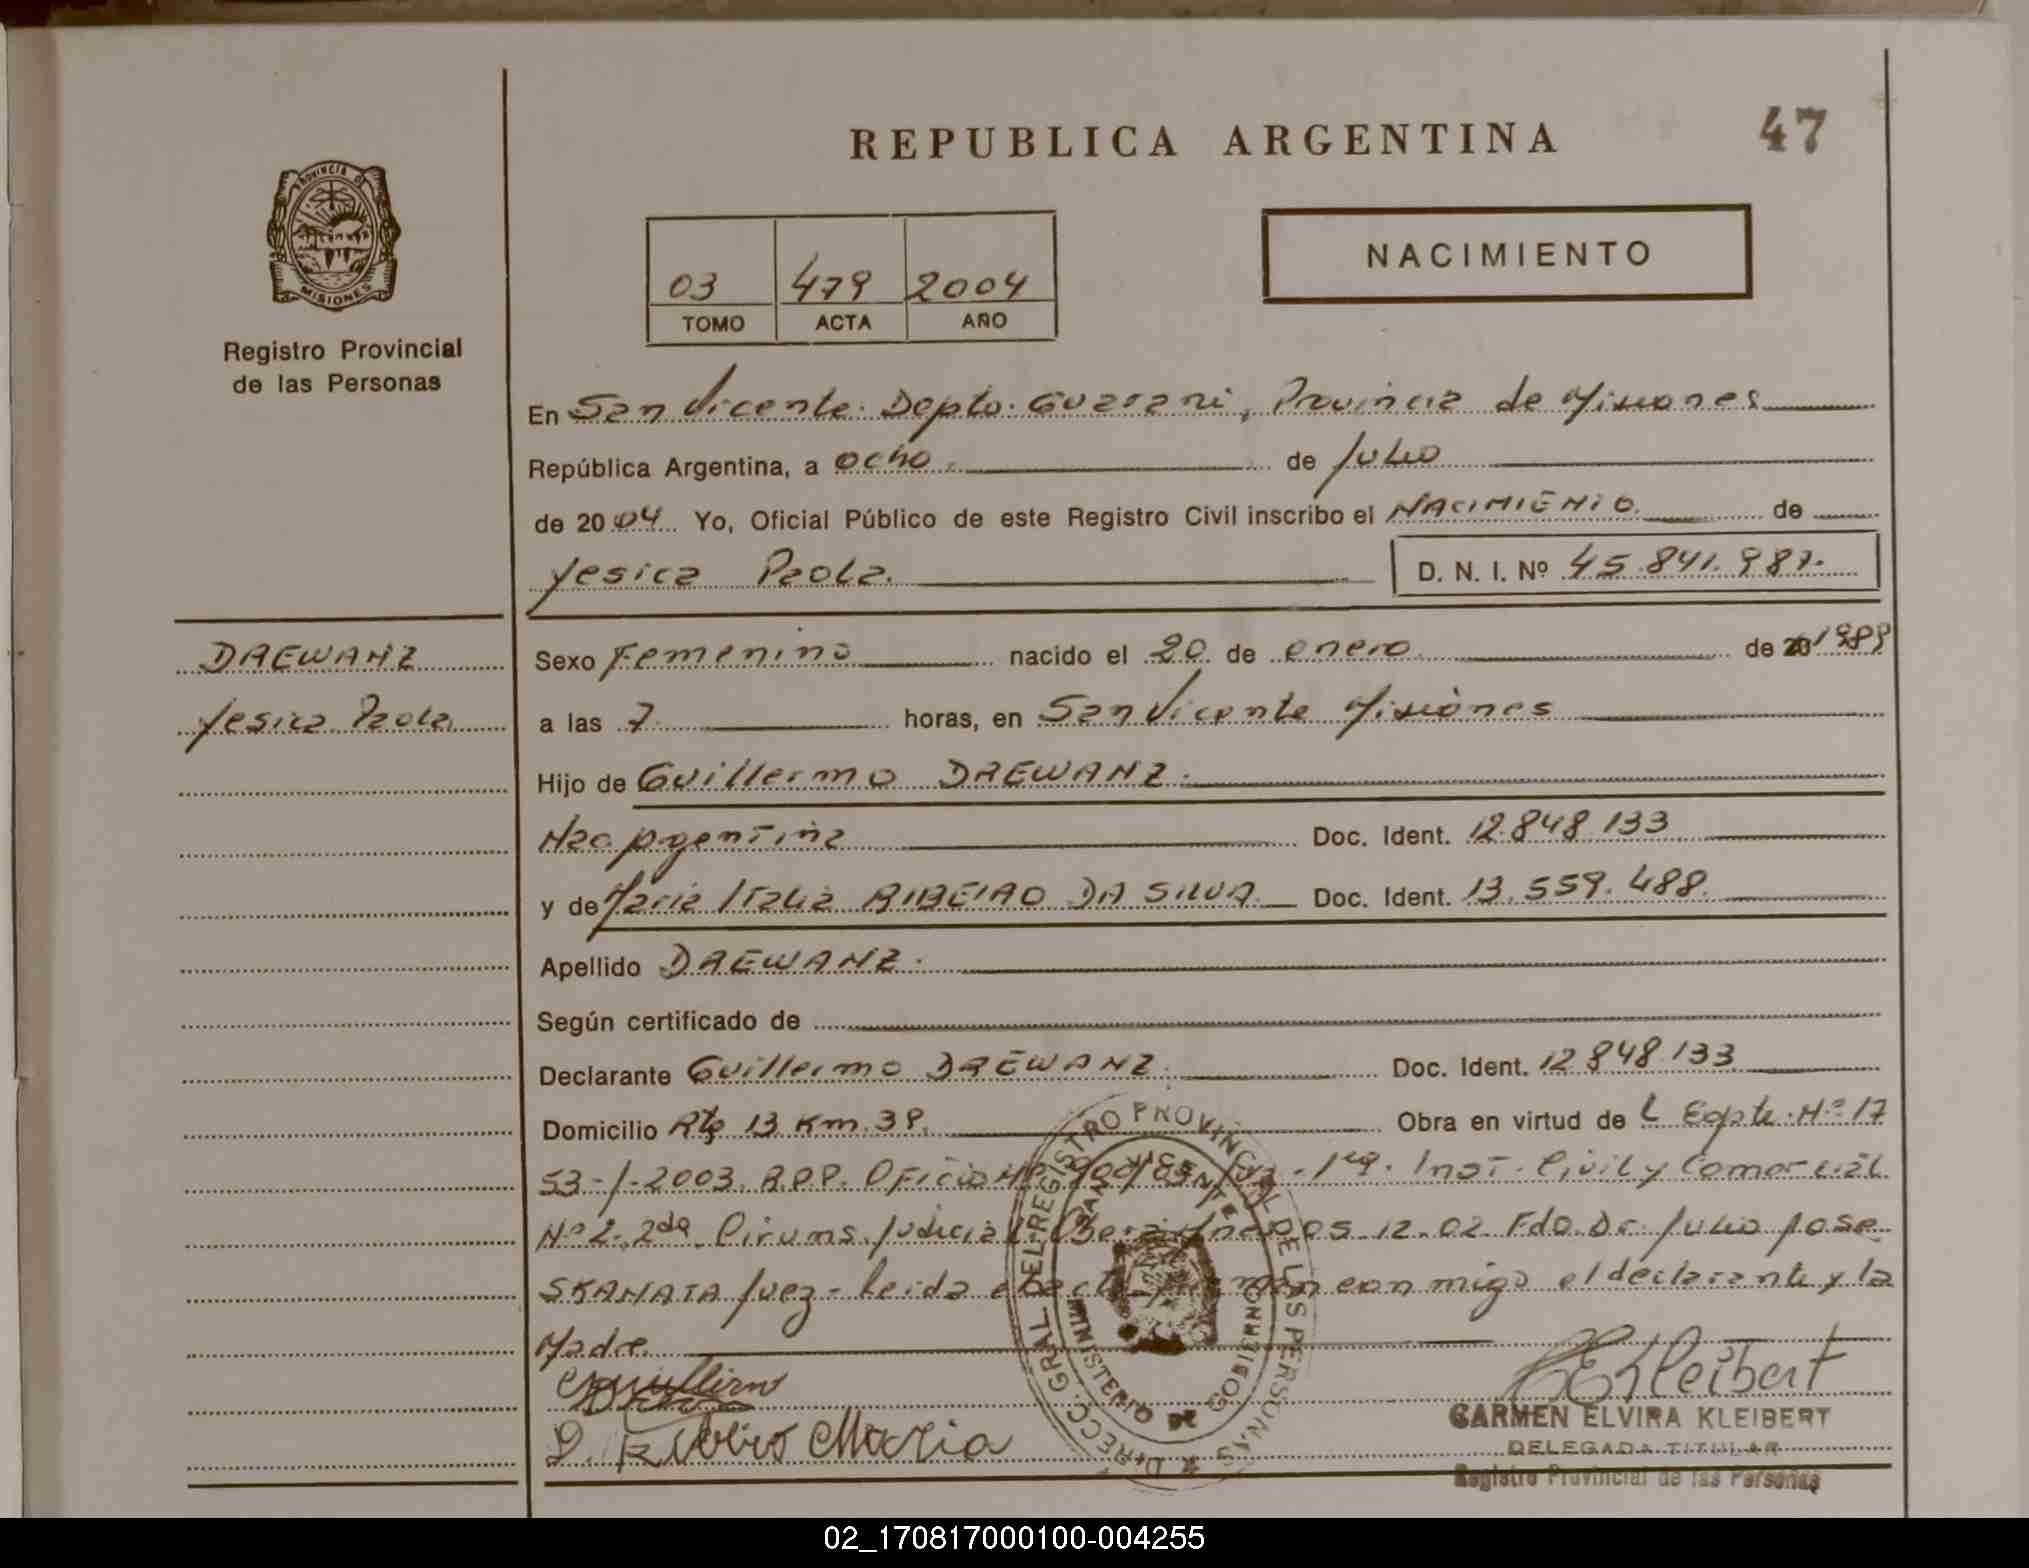 REPUBLICA ARGENTINA
47
PROVINCIA DE
MISIONES
Registro Provincial
de las Personas
03 479 2004
TOMO ACTA AÑO
NACIMIENTO
En San Vicente. Depto. Guarani, Provincia de Misiones
República Argentina, a ocho de Julio
de 2004 Yo, Oficial Público de este Registro Civil inscribo el NACIMIENTO de
Yesica Paola. D. N. I. Nº 45.841.987.
DAEWANZ
Yesica Paola
Sexo Femenino nacido el 20 de enero de 1989
a las 7 horas, en San Vicente Misiones
Hijo de Guillermo DAEWANZ.
Nac. Argentina Doc. Ident. 12.848.133
y de Maria Italia RIBEIRO DA SILVA Doc. Ident. 13.559.488.
Apellido DAEWANZ.
Según certificado de
Declarante Guillermo DAEWANZ. Doc. Ident. 12.848.133
Domicilio Rta 13 Km. 39. Obra en virtud de L Expte. Nº 17
53-/-2003. R.P.P. Oficio Nº Juz. 1ra. Inst. Civil y Comercial
Nº 2. 2da Circuns. Judicial 05.12.02 Fdo. Dr. Julio Jose
SKANATA Juez - Leida el acta firman conmigo el declarante y la
Madre.
Maria
Kleibert
CARMEN ELVIRA KLEIBERT
DELEGADA TITULAR
Registro Provincial de las Personas
DIRECC. GRAL DEL REGISTRO PROVINCIAL DE LAS PERSONAS
SAN VICENTE
MINISTERIO DE GOBIERNO
02_170817000100-004255